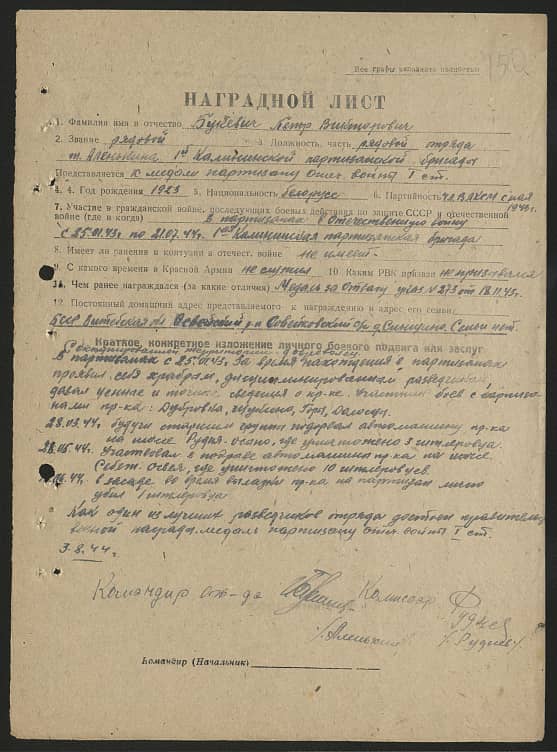 Все графы заполнять полностью
150
НАГРАДНОЙ ЛИСТ
1. Фамилия имя и отчество Буевич Петр Викторович
2. Звание рядовой 3. Должность, часть рядовой отряда
т. Аленькина 1ой Калининской партизанской бригады
Представляется к медали партизану отеч. войны I ст.
4. Год рождения 1923 5. Национальность белорус 6. Партийность чл. ВЛКСМ с мая
1943г.
7. Участие в гражданской войне, последующих боевых действиях по защите СССР и отечественной
войне (где и когда) в партизанах в Отечественную войну
с 25.01.43г по 21.07.44г. 1ая Калининская партизанская бригада
8. Имеет ли ранения и контузии в отечест. войне не имеет.
9. С какого времени в Красной Армии не служил 10. Каким РВК призван не призывался
11. Чем ранее награждался (за какие отличия) Медаль за Отвагу 18.11.43г.
12. Постоянный домашний адрес представляемого к награждению и адрес его семьи:
БССР Витебская обл Освейский р-н с/с д. Семьи нет.
Краткое, конкретное изложение личного боевого подвига или заслуг
С оккупированной территории. Доброволец
В партизанах с 25.01.43г. За время нахождения в партизанах
проявил себя храбрым, дисциплинированным разведчиком,
давал ценные и точные сведения о пр-ке. Участник боев с гарнизо-
нами пр-ка: Дубровка,
28.03.44г. будучи старшим группы подорвал автомашину пр-ка
на шоссе где уничтожено 3 гитлеровца.
28.05.44г. Участвовал в подрыве автомашины пр-ка на шоссе
Освея, где уничтожено 10 гитлеровцев.
06.44г. в засаде во время вылазки пр-ка на партизан лично
убил 1 гитлеровца
Как один из лучших разведчиков отряда достоин правительст
венной награды медаль партизану отеч. войны I ст.
3.8.44г.
Командир от-да Комиссар
/Аленькин/ /Руднев/
Командир (Начальник)